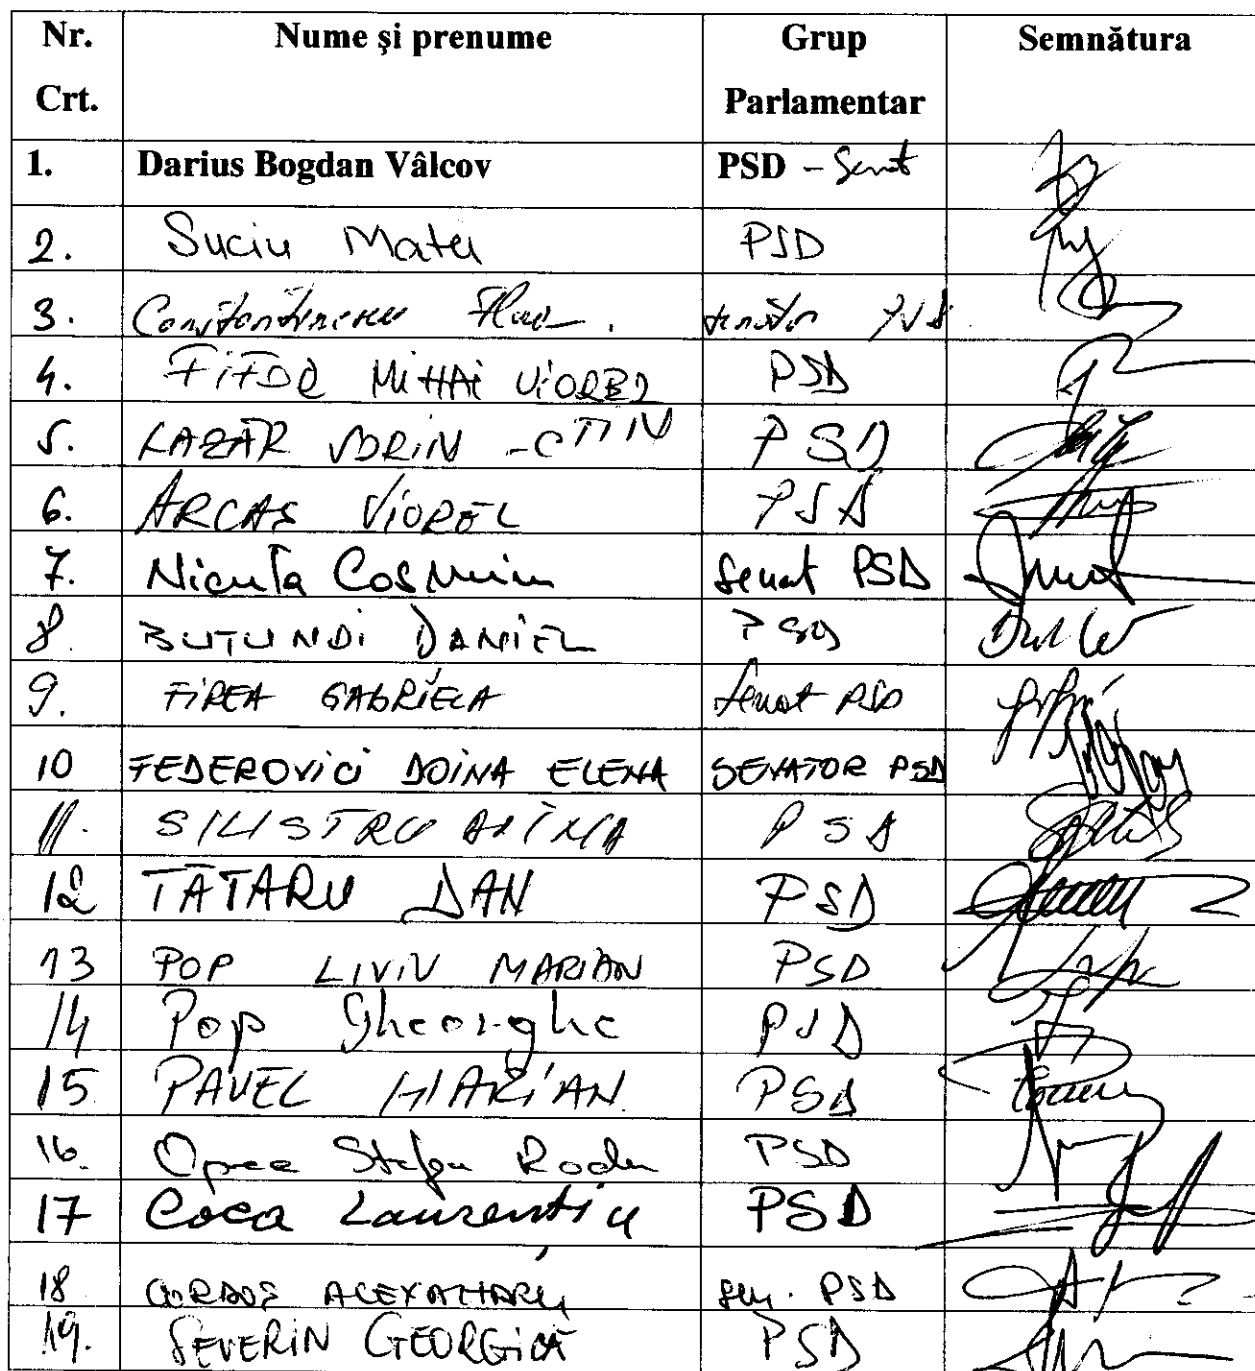 Nr. Crt. Nume şi prenume Grup Parlamentar Semnătura
1. Darius Bogdan Vâlcov PSD - Senat
2. Suciu Matei PSD
3. Constantinescu senator PSD
4. FIFOR MIHAI VIOREL PSD
5. LAZĂR SORIN - CTIN PSD
6. ARCAȘ VIOREL PSD
7. Niculа Cosmin Senat PSD
8. BUTUNOI DANIEL PSD
9. FIREA GABRIELA Senat PSD
10 FEDEROVICI DOINA ELENA SENATOR PSD
11. SILISTRU DOINA PSD
12 TĂTARU DAN PSD
13 POP LIVIU MARIAN PSD
14 Pop Gheorghe PSD
15 PAVEL MARIAN PSD
16. Oprea Stefan Radu PSD
17 Coca Laurenţiu PSD
18 CORDOȘ ALEXANDRU sen. PSD
19. SEVERIN GEORGICĂ PSD